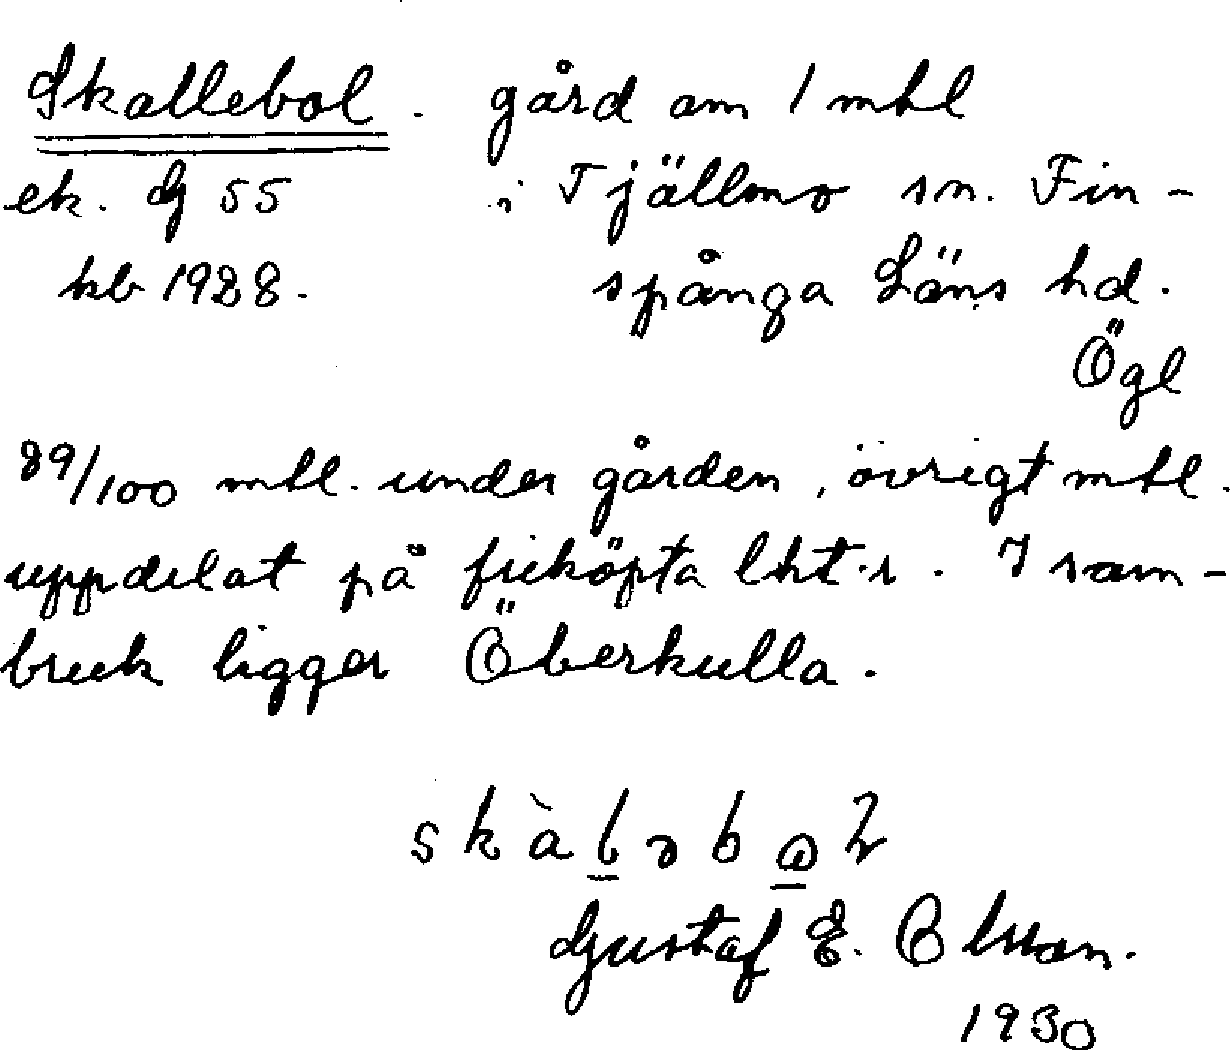 Skallebol. gård om 1 mtl
ek. dj 55 i Tjällmo sn. Fin-
kb 1928. spånga Läns hd.
Ögl
89/100 mtl. under gården, övrigt mtl.
uppdelat på friköpta lht.r. I sam-
bruk ligger Öberkulla.
Gustaf E. Olsson.
1930